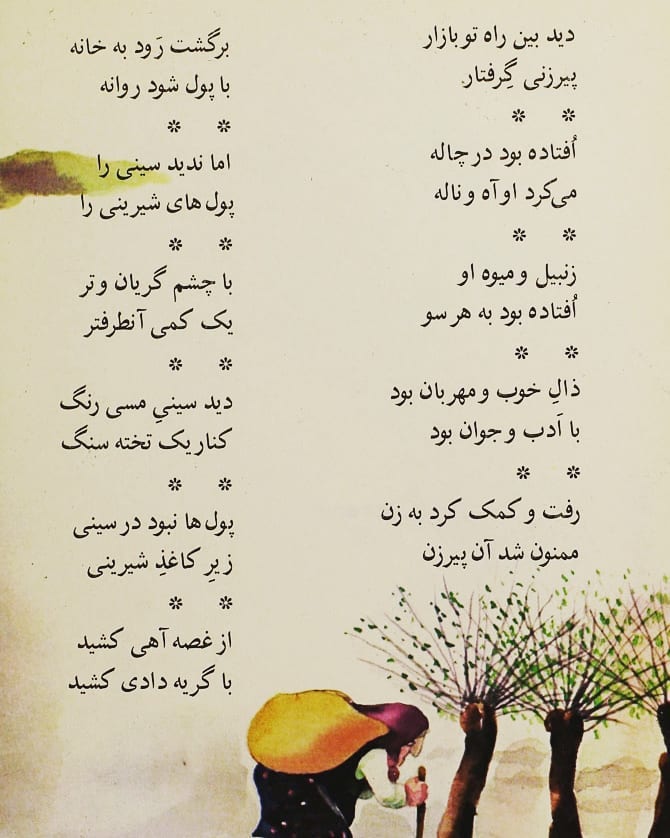 دید بین راه تو بازار
پیرزنی گِرفتار
* *
اُفتاده بود در چاله
می‌کرد او آه و ناله
* *
زنبیل و میوه او
اُفتاده بود به هر سو
* *
ذالِ خوب و مهربان بود
با اَدب و جوان بود
* *
رفت و کمک کرد به زن
ممنون شد آن پیرزن
برگشت رَود به خانه
با پول شود روانه
* *
اما ندید سینی را
پول‌های شیرینی را
* *
با چشم گریان و تر
یک کمی آنطرفتر
* *
دید سینیِ مسی رنگ
کنار یک تخته سنگ
* *
پول‌ها نبود در سینی
زیرِ کاغذِ شیرینی
* *
از غصه آهی کشید
با گریه دادی کشید